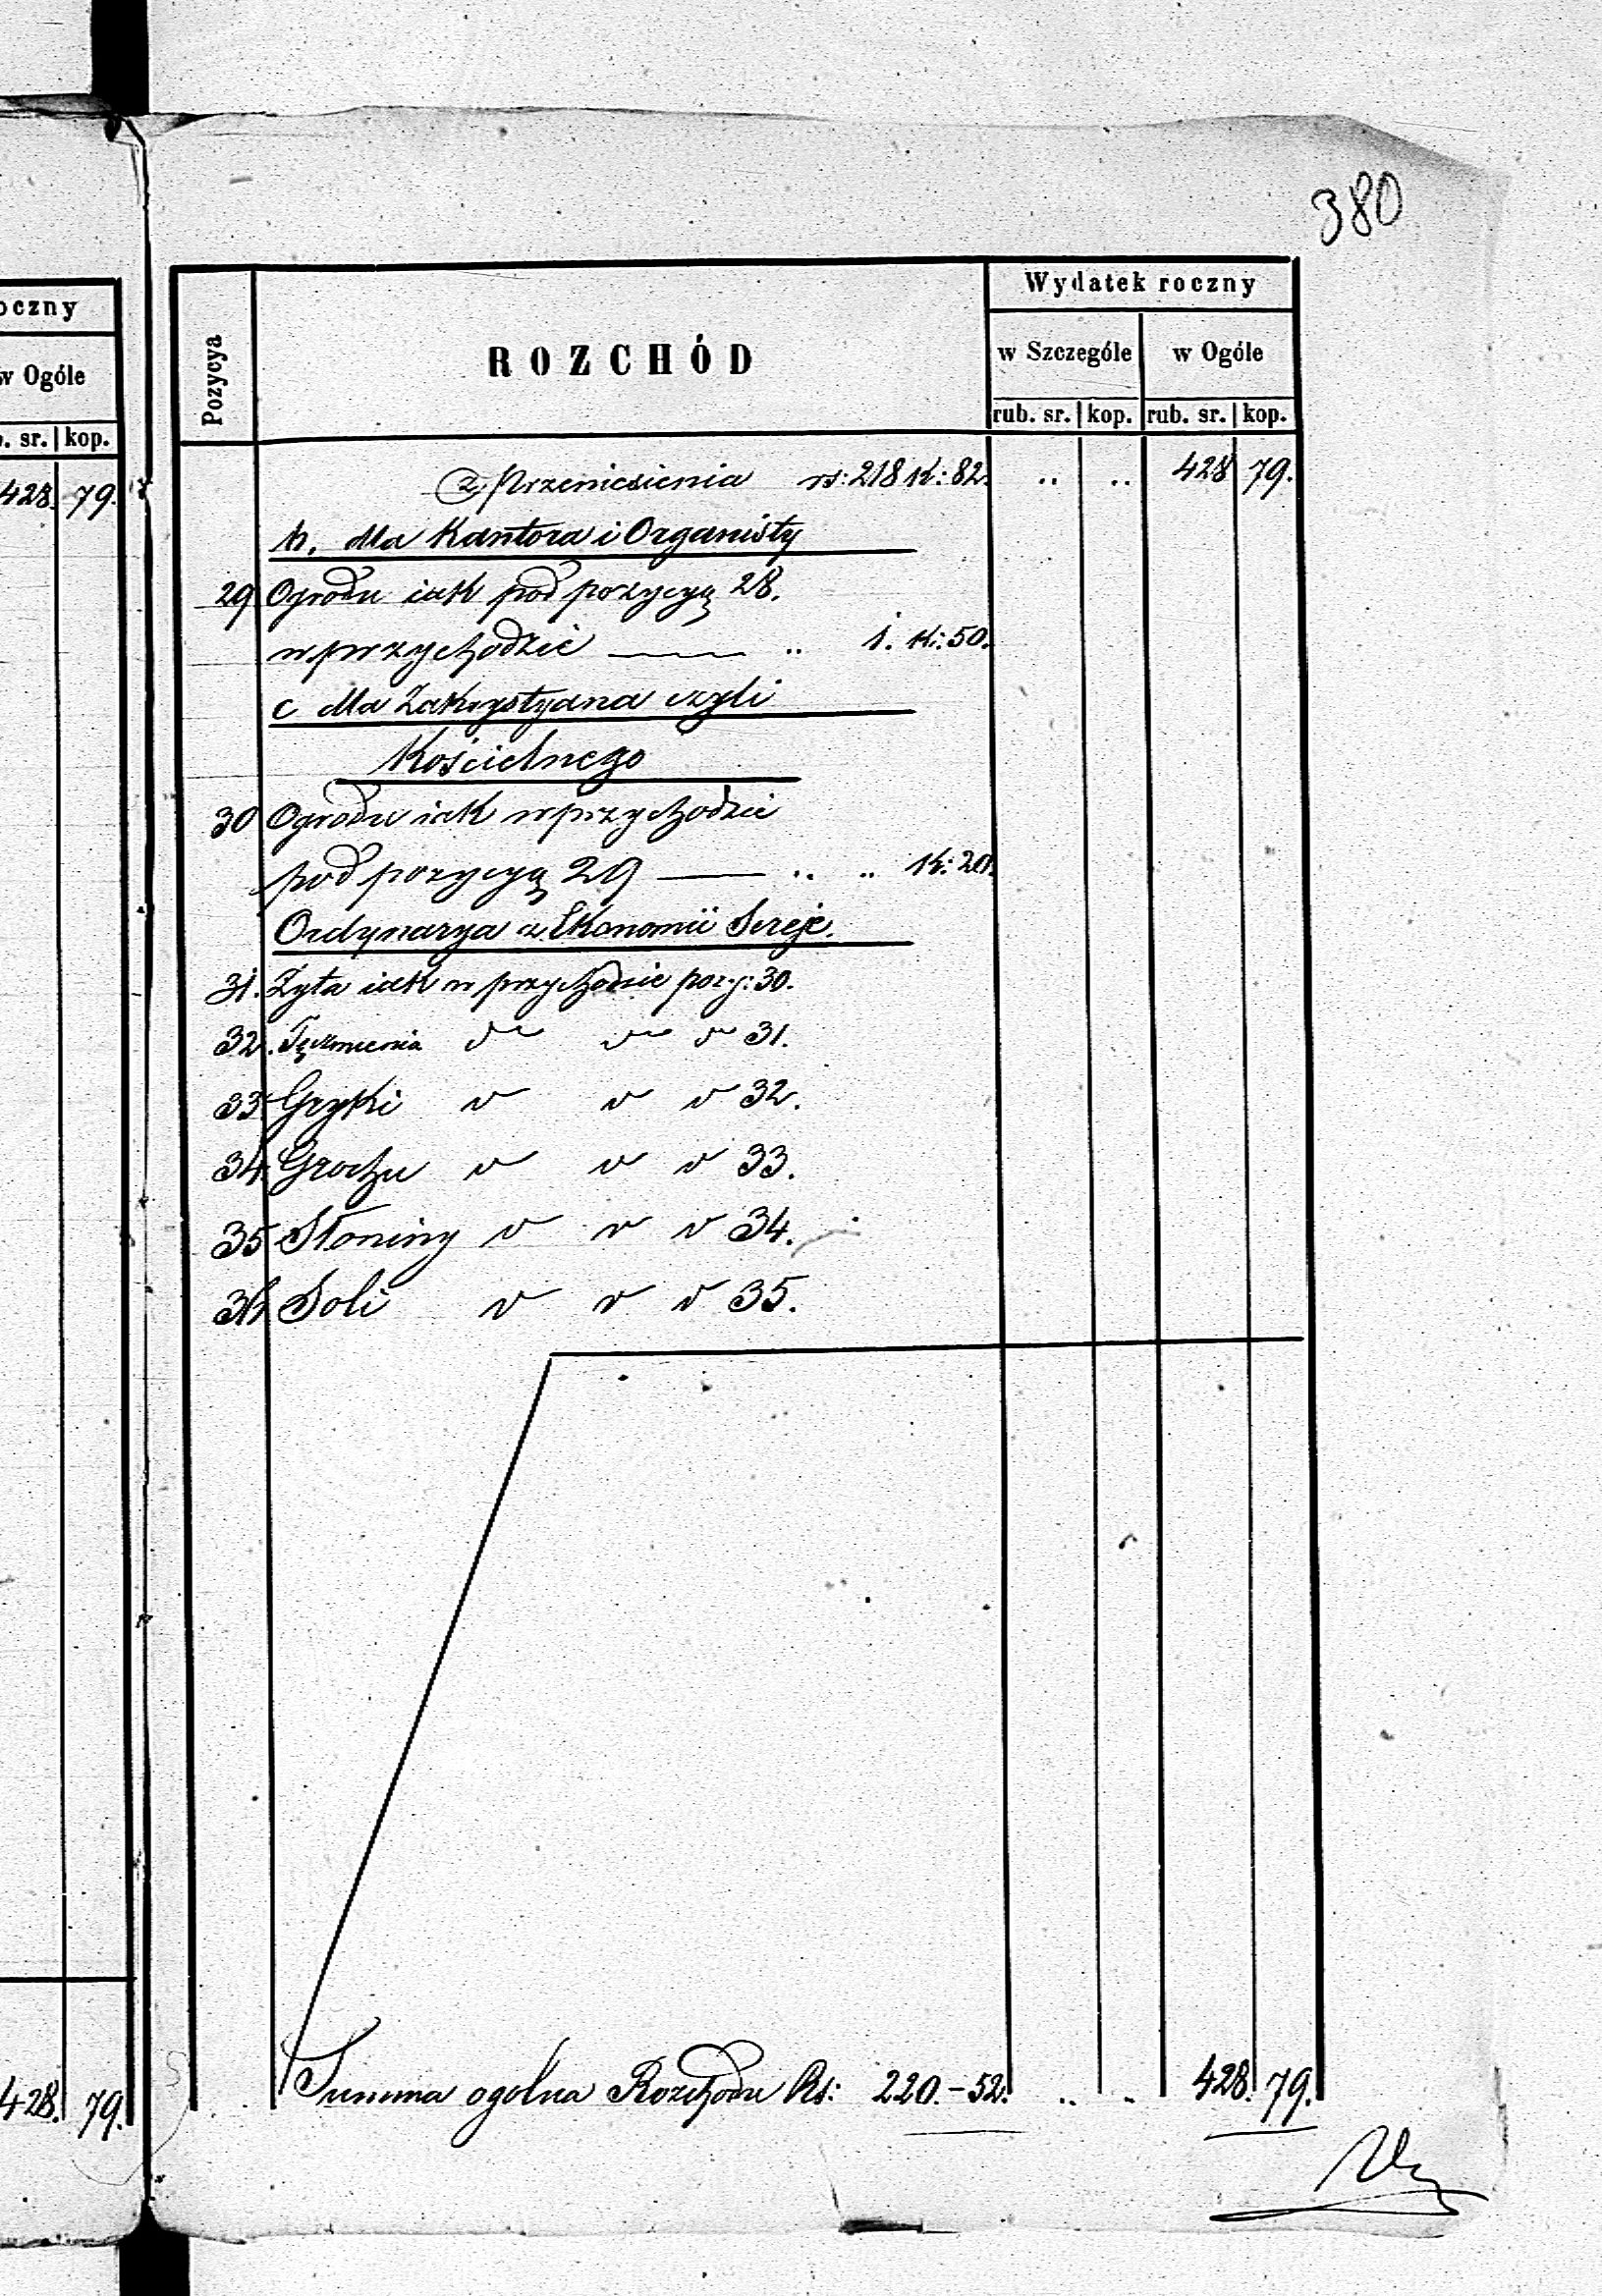 380
oczny
w Ogóle
. sr. kop.
428. 79.
428. 79.
Pozycya
ROZCHÓD
Wydatek roczny
w Szczególe w Ogóle
rub. sr. kop. rub. sr. kop.
z Przeniesienia rs: 218 k: 82. .. .. 428 79.
b. dla Kantora i Organisty
29 Ogrodu iak pod pozycyą 28.
w przychodzie .. 1. k: 50.
c dla Zakrystyana czyli
Kościelnego
30 Ogrodu iak w przychodzie
pod pozycyą 29 .. .. k: 20.
Ordynarya z Ekonomii Sereje.
31. Żyta iak w przychodzie pozy: 30.
32. Jęczmienia 31.
33. Gryki 32.
34. Grochu 33.
35 Słoniny 34.
36 Soli 35.
Summa ogolna Rozchodu Rs: 220.-52. .. . 428. 79.